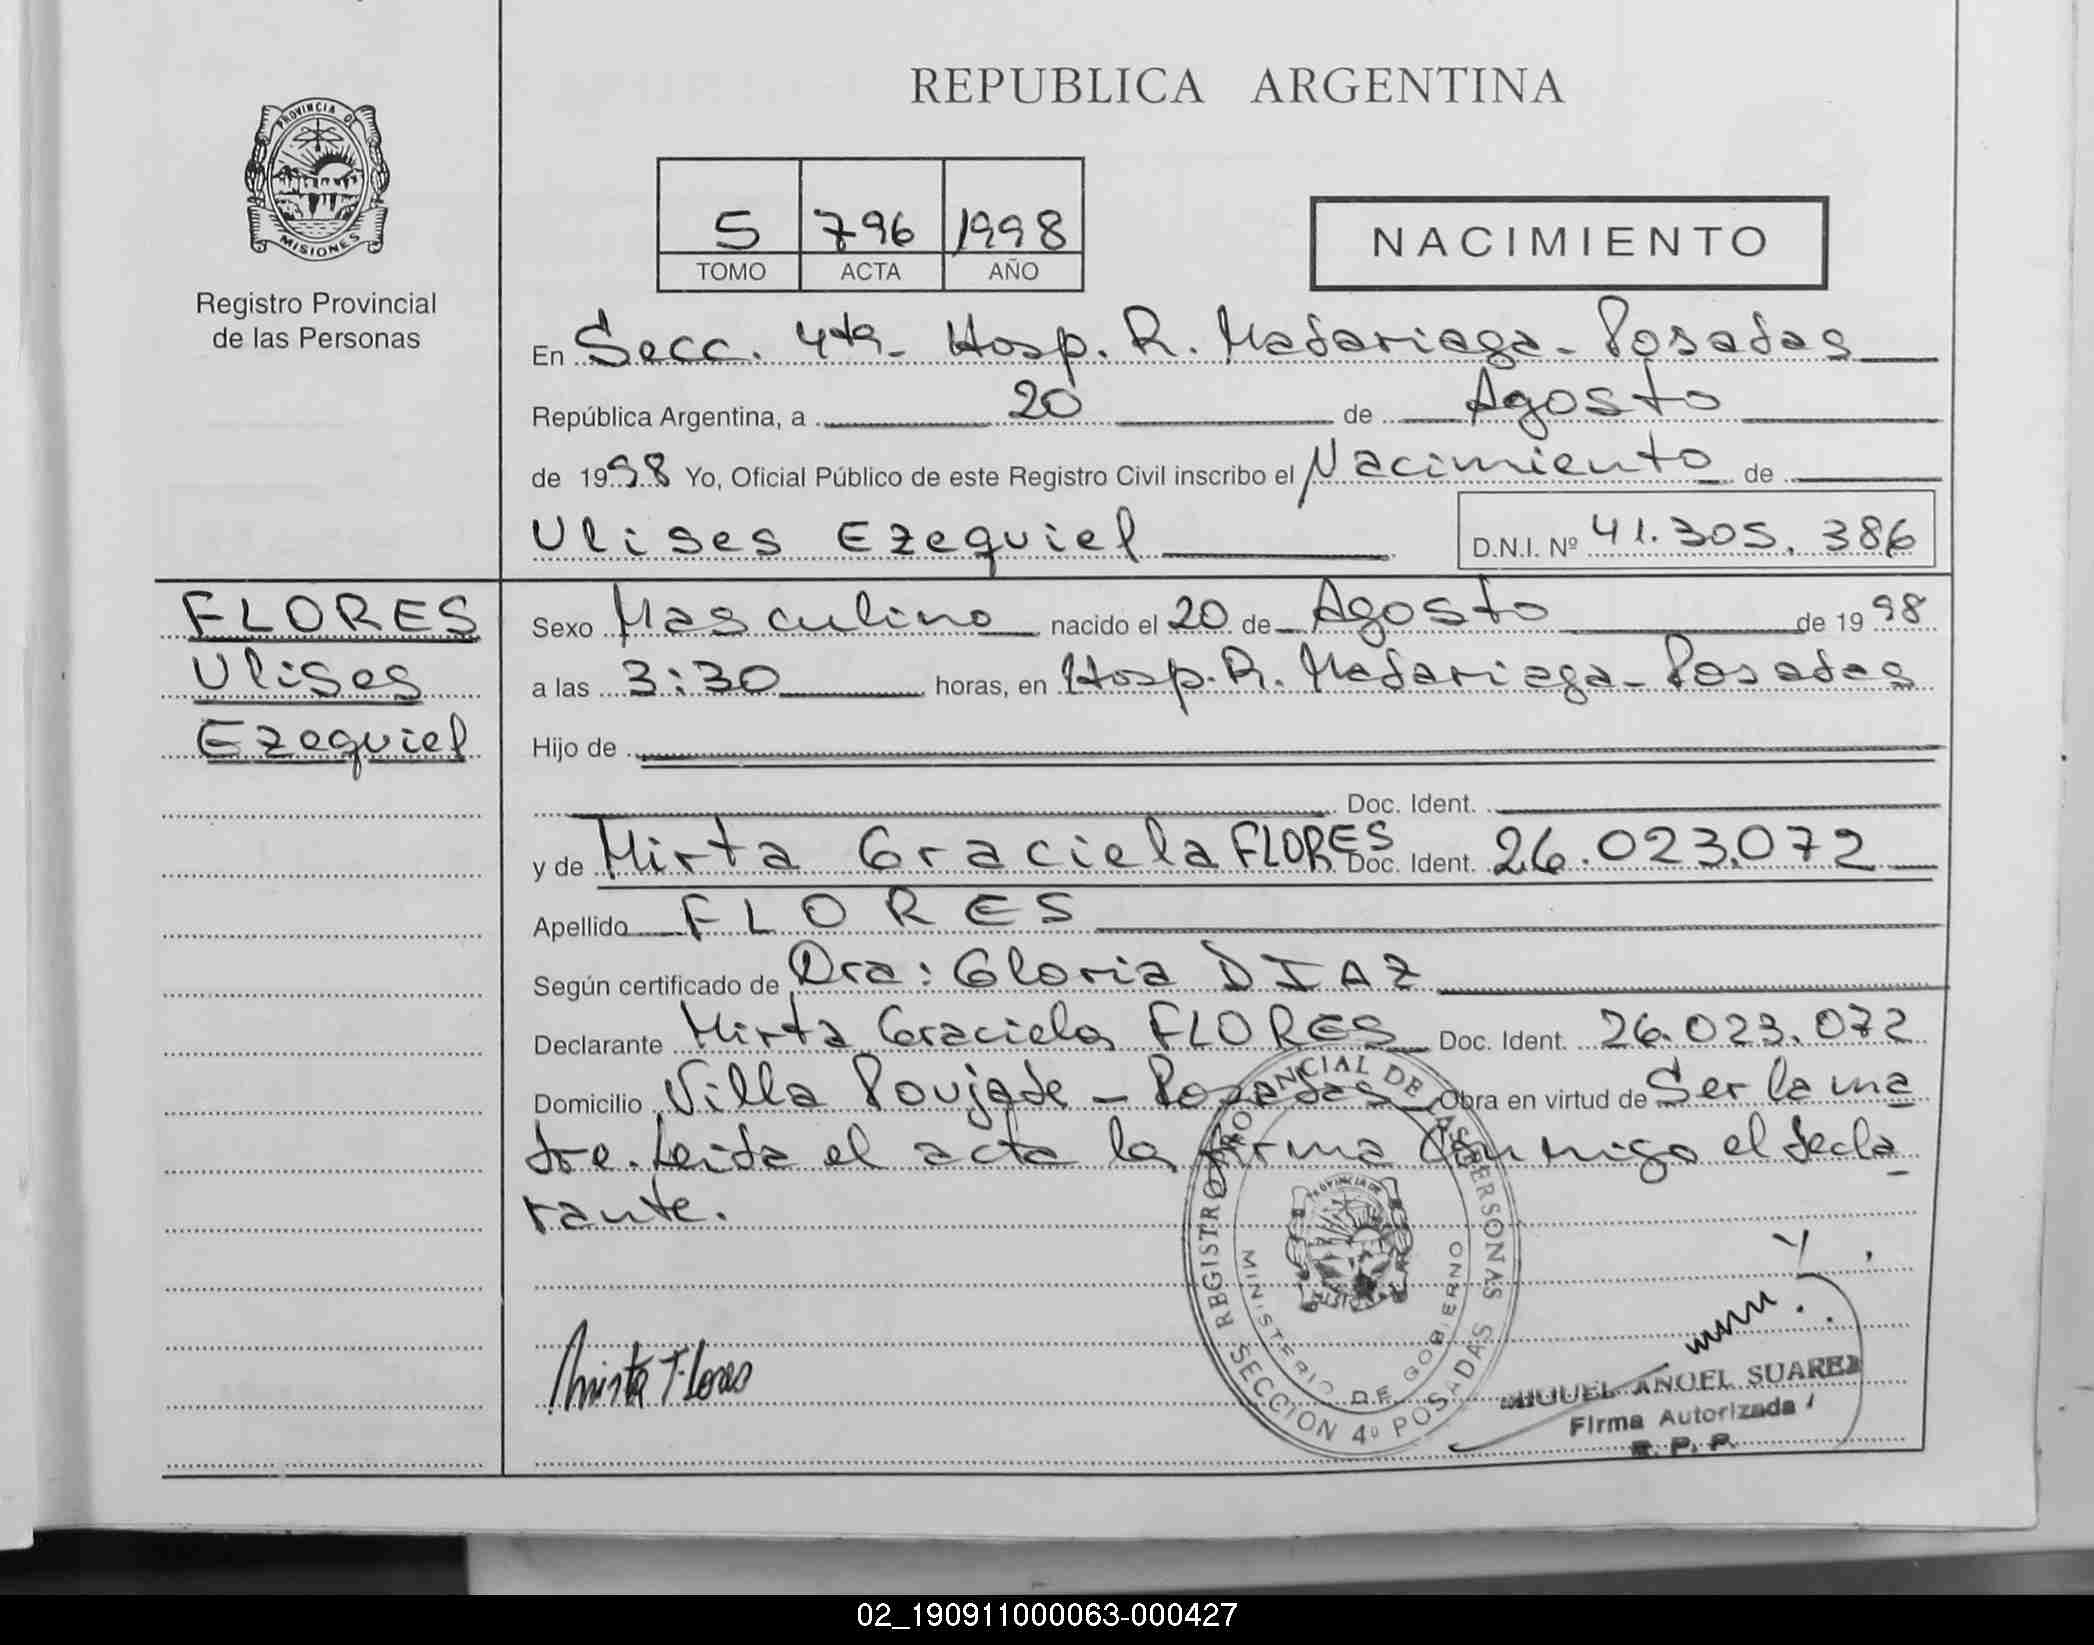 REPUBLICA ARGENTINA
PROVINCIA DE
MISIONES
Registro Provincial
de las Personas
5 796 1998
TOMO ACTA AÑO
NACIMIENTO
En Secc. 4ta- Hosp. R. Madariaga- Posadas
República Argentina, a 20 de Agosto
de 1998 Yo, Oficial Público de este Registro Civil inscribo el Nacimiento de
Ulises Ezequiel D.N.I. Nº 41.305.386
FLORES
Ulises
Ezequiel
Sexo Masculino nacido el 20 de Agosto de 1998
a las 3:30 horas, en Hosp. R. Madariaga- Posadas
Hijo de
Doc. Ident.
y de Mirta Graciela FLORES Doc. Ident. 26.023.072
Apellido FLORES
Según certificado de Dra: Gloria DIAZ
Declarante Mirta Graciela FLORES Doc. Ident. 26.023.072
Domicilio Villa Poujade - Posadas Obra en virtud de Ser la ma
dre. Leida el acta la firma conmigo el decla
rante.
REGISTRO PROVINCIAL DE LAS PERSONAS
PROVINCIA DE
MISIONES
MINISTERIO DE GOBIERNO
SECCION 4º POSADAS
Mirta Flores
MIGUEL ANGEL SUAREZ
Firma Autorizada
R. P. P.
02_190911000063-000427